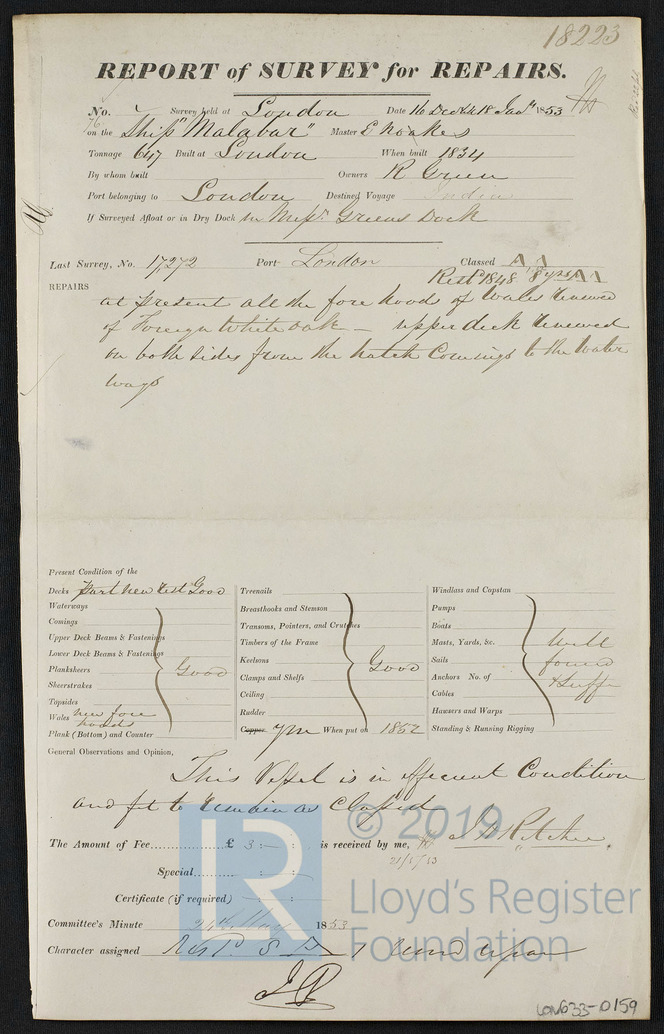 18223
REPORT of SURVEY for REPAIRS.
No. Survey held at London Date 16 Dec 18 Jany 1853
on the Ship "Malabar" Master E Noakes
Tonnage 647 Built at London When built 1834
By whom built Owners R Green
Port belonging to London Destined Voyage India
If Surveyed Afloat or in Dry Dock in Messrs Greens Dock
Last Survey, No. 17,272 Port London Classed A A
Rest 1848 8 yrs A A
REPAIRS
at present all the fore hoods of Wales renewed
of Foreign White oak — upper deck renewed
on both sides from the hatch Comings to the Water
ways
Present Condition of the
Decks part new rest Good
Waterways
Comings
Upper Deck Beams & Fastenings
Lower Deck Beams & Fastenings
Planksheers
Sheerstrakes
Topsides
Good
Wales new fore hoods
Plank (Bottom) and Counter
Treenails
Breasthooks and Stemson
Transoms, Pointers, and Crutches
Timbers of the Frame
Keelsons
Clamps and Shelfs
Ceiling
Rudder
Good
Copper ym When put on 1852
Windlass and Capstan
Pumps
Boats
Masts, Yards, &c.
Sails
Anchors No. of
Cables
Hawsers and Warps
Standing & Running Rigging
Well
found
& Sufft
General Observations and Opinion,
This Vessel is in efficient Condition
and fit to remain as Classed
The Amount of Fee £ 3 : — : is received by me,
Special
Certificate (if required)
Committee's Minute 24th May 1853
Character assigned
© 2019
Lloyd's Register
Foundation
LR
LON633-0159